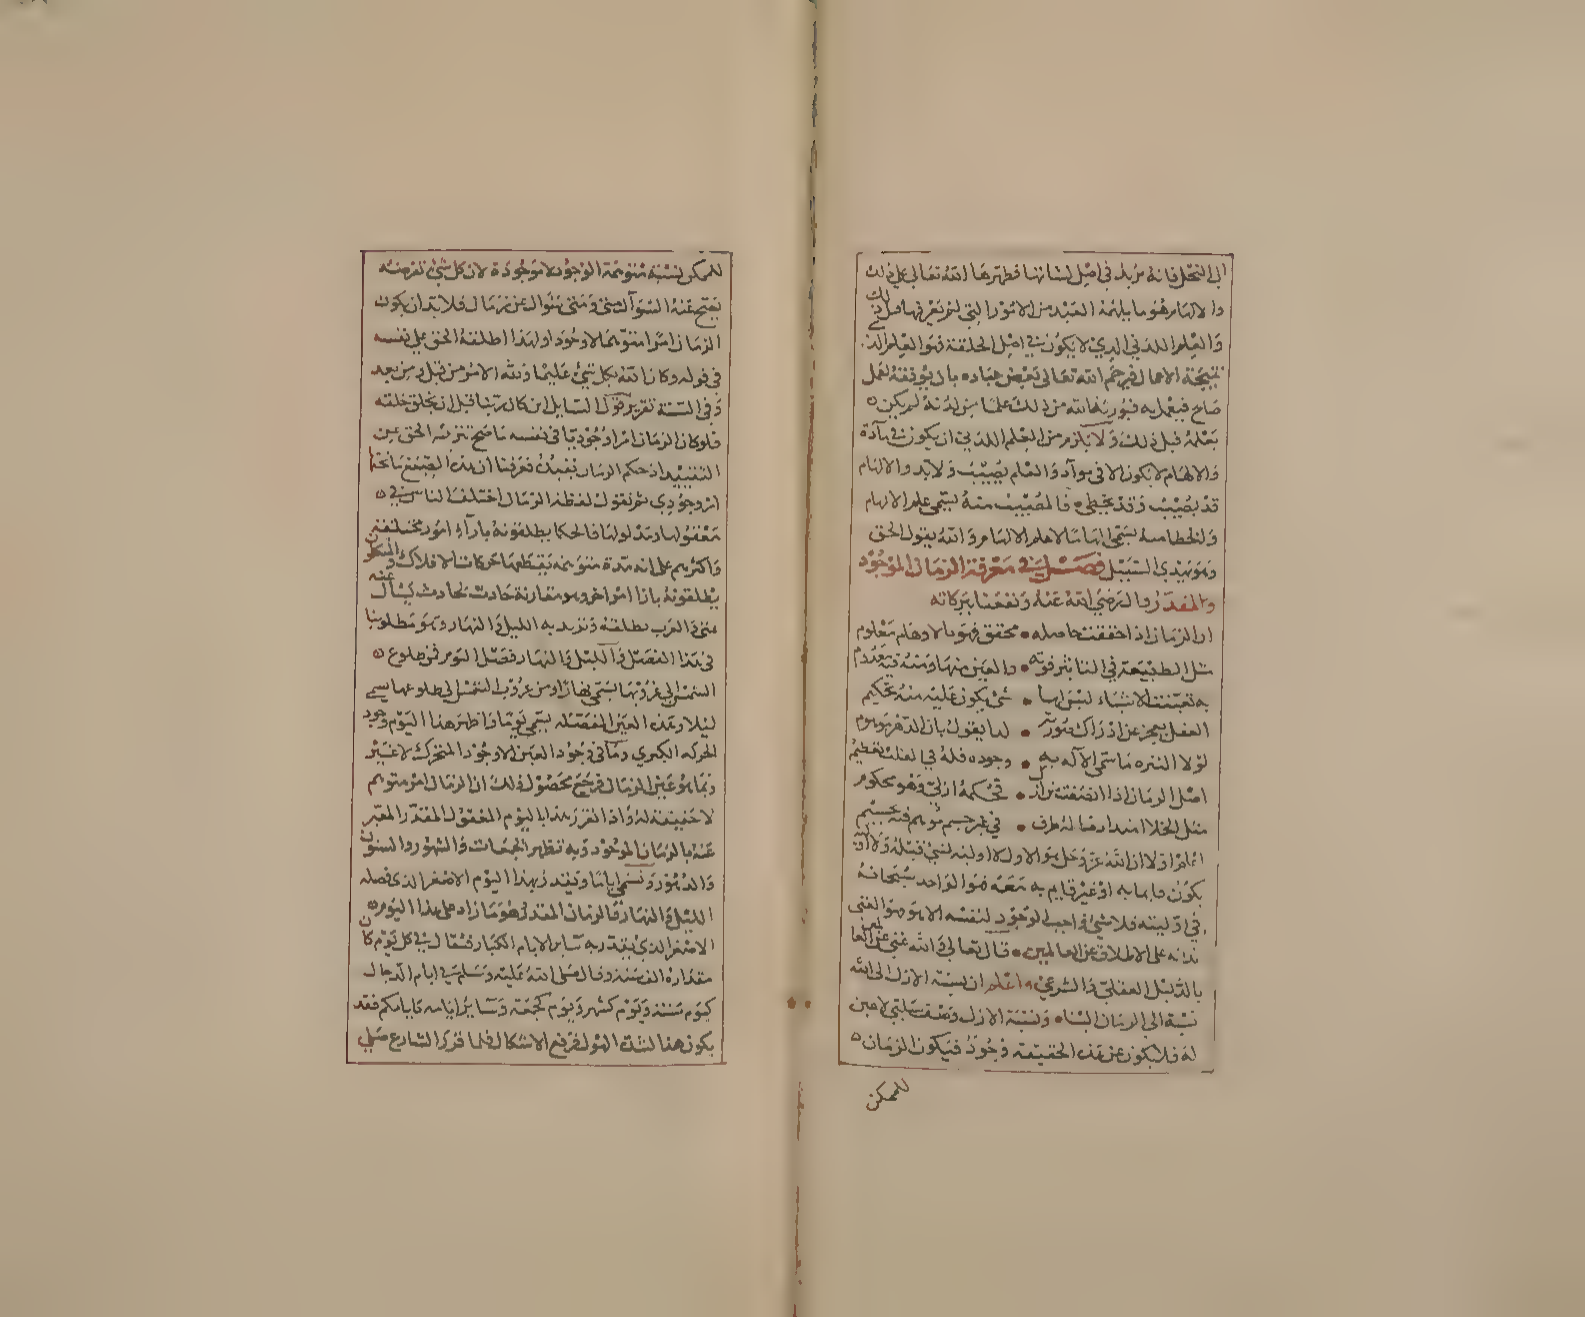 الى النحل فانه مزيد في اصل نشاتها فطرها الله تعالى على ذلك
والالهام هو ما يلهمه العبد من الامور التي لم يعرفها من ذلك
والعلم اللدني الذي لا يكون في اصل الخلقة فهو العلم الذي
نتيجة الاعمال فيرحم الله تعالى بعض عباده بان يوفقه لعمل
صالح فيعمل به فيورثه الله من ذلك علما من لدنه لم يكن
يعلمه قبل ذلك ولا يلزم من العلم اللدني ان يكون في مادة
والالهام لا يكون الا في مواد والعلم يصيب ولا بد والالهام
قد يصيب وقد يخطي فالمصيب منه يسمى علم الالهام
والخطا منه يسمى الهاما لا علم الالهام والله يقول الحق
وهو يهدي السبيل فصل في معرفة الزمان الموجود
والمقدر وال رضي الله عنه ونفعنا ببركاته
ان الزمان اذا حققت حاصله • محقق فهو بالاوهام معلوم
مثل الطبيعة في التاثير قوته • والعين منها ومنه فيه معدوم
به تعينت الاشياء ليس لها • عين يكون عليه منه تحكيم
العقل يعجز عن ادراك صورته • لذا يقول بان الدهر موهوم
لولا التنزه ما سمى الاله به • وجوده فله في القلب تعظيم
اصل الزمان اذا انصفت من ازل • فحكمه ازلي وهو محكوم
مثل الخلا امتداد ما له طرف • في غير جسم موهم فيه تجسيم
اعلم اولا ان الله عز وجل هو الاول لا اولية لشيء قبله ولا اولية
يكون قايما به او غير قايم به معه فهو الواحد سبحانه
في اوليته فلا شيء واجب الوجود لنفسه الا هو فهو الغني
بذاته على الاطلاق عن العالمين • قال تعالى والله غني عن العالمين
بالدليل العقلي والشرعي واعلم ان نسبة الازل الى الله
نسبة الزمان الينا • ونسبة الازل وصف سلبي لا عين
له فلا يكون عن هذه الحقيقة وجود فيكون الزمان
للممكن
للممكن نسبة متوهمة الوجود لا موجودة لان كل شيء تفرضه
يصح عنه السوآل بمتى ومتى سوال عن زمان فلا بد ان يكون
الزمان امرا متوهما لا وجودا ولهذا اطلقه الحق على نفسه
في قوله وكان الله بكل شيء عليما ولله الامر من قبل ومن بعد
وفي السنة تقرير قول السايل اين كان ربنا قبل ان يخلق خلقه
فلو كان الزمان امرا وجوديا في نفسه ما صح تنزيه الحق عن
التقييد اذ حكم الزمان يقيده فعرفنا ان هذه الصيغ ما تحتها
امر وجودي ثم نقول لفظة الزمان اختلف الناس في
معقولها ومدلولها فالحكما يطلقونه بازآء امور مختلفة
واكثرهم على انه مدة متوهمة تقطعها حركات الافلاك والمتكلمون
يطلقونه بازا امر اخر وهو مقارنة حادث لحادث يسأل عنه
بمتى والعرب تطلقه وتريد به الليل والنهار وهو مطلوبنا
في هذا الفصل والليل والنهار فصل اليوم فمن طلوع
الشمس الى غروبها يسمى نهارا ومن غروب الشمس الى طلوعها يسمى
ليلا وهذه العين المفصلة يسمى يوما واظهر هذا اليوم وجود
الحركة الكبرى وما في وجود العين الا وجود المتحرك لا غير
وما هو عين الزمان فرجع محصول ذلك ان الزمان امر متوهم
لا حقيقة له واذا تقرر هذا فاليوم المعقول المقدر المعبر
عنه بالزمان الموجود وبه تظهر الجمعات والشهور والسنون
والدهور وتسمى اياما وتقدر بهذا اليوم الاصغر الذي فصله
الليل والنهار فالزمان المقدر هو ما زاد على هذا اليوم
الاصغر الذي يقدر به ساير الايام الكبار فقال في كل يوم كان
مقداره الف سنة وقال صلى الله عليه وسلم في ايام الدجال
كيوم سنة ويوم كشهر ويوم كجمعة وساير ايامه كايامكم فقد
يكون هذا لشدة الهول فرفع الاشكال فلما قرر الشارع صلى